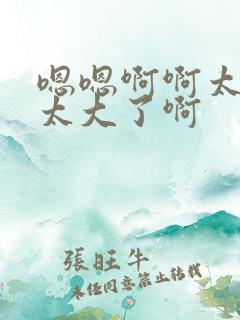 嗯嗯啊啊太
太大了啊
張旺牛
未经同意禁止转载